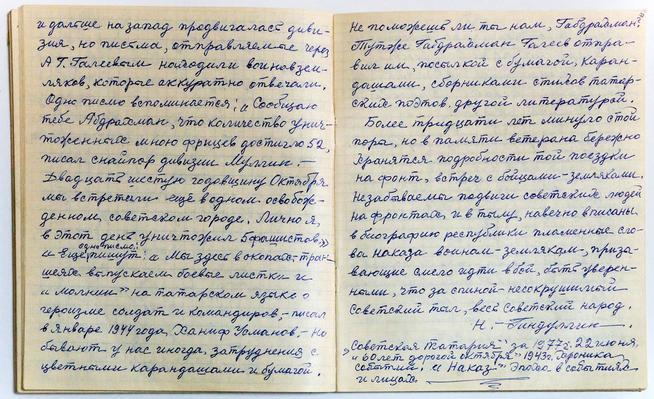 и дальше на запад продвигалась диви-
зия, но письма, отправляемые через
А Г. Галеевым находили воинов зем-
ляков, которые аккуратно отвечали.
Одно писмо вспоминается: „Сообщаю
тебе Абдрахман, что количество унич-
тоженных мною фрицев достигло 52,
писал снайпер дивизии Муллин. –
Двадцать шестую годовщину Октября
мы встретили ещё в одном освобож-
денном, советском городе. Лично я,
в этот день уничтожил 5 фашистов,»
и – Ещё одно письмо: пишут: „Мы здесь в окопах – тран-
шеях выпускаем боевые листки и
„молнии" на татарском языке о
героизме солдат и командиров, – писал
в Январе 1944 года, Ханиф Усманов. – Но
бывают у нас иногда, затруднения с
цветными карандашами и бумагой.
Не поможешь ли ты нам, Габдрахман?"
Тут же Габдрахман Галеев отпра-
вил им, посылкой с бумагой, каран-
дашами, сборниками стихов татар-
ских поэтов, другой литературой.
Более тридцати лет минуло с той
поры, но в памяти ветерана бережно
хранятся подробности той поездки
на фронт, встреч с бойцами-земляками.
Незабываемы подвиги советских людей
на фронтах, и в тылу, навечно вписаны
в биографию республики пламенные сло-
ва наказа воинам-землякам, призы-
вающие смело идти в бой, быть уверен-
ными, что за спиной – несокрушимый
Советский тыл, весь Советский народ.
Н. – Гиндуллин
„Советская Татария" за 1977 г. 22 июня,
„60 лет дорогой октября" 1943 г. Хроника
событий. „Наказ" Эпоха в событиях
и лицах